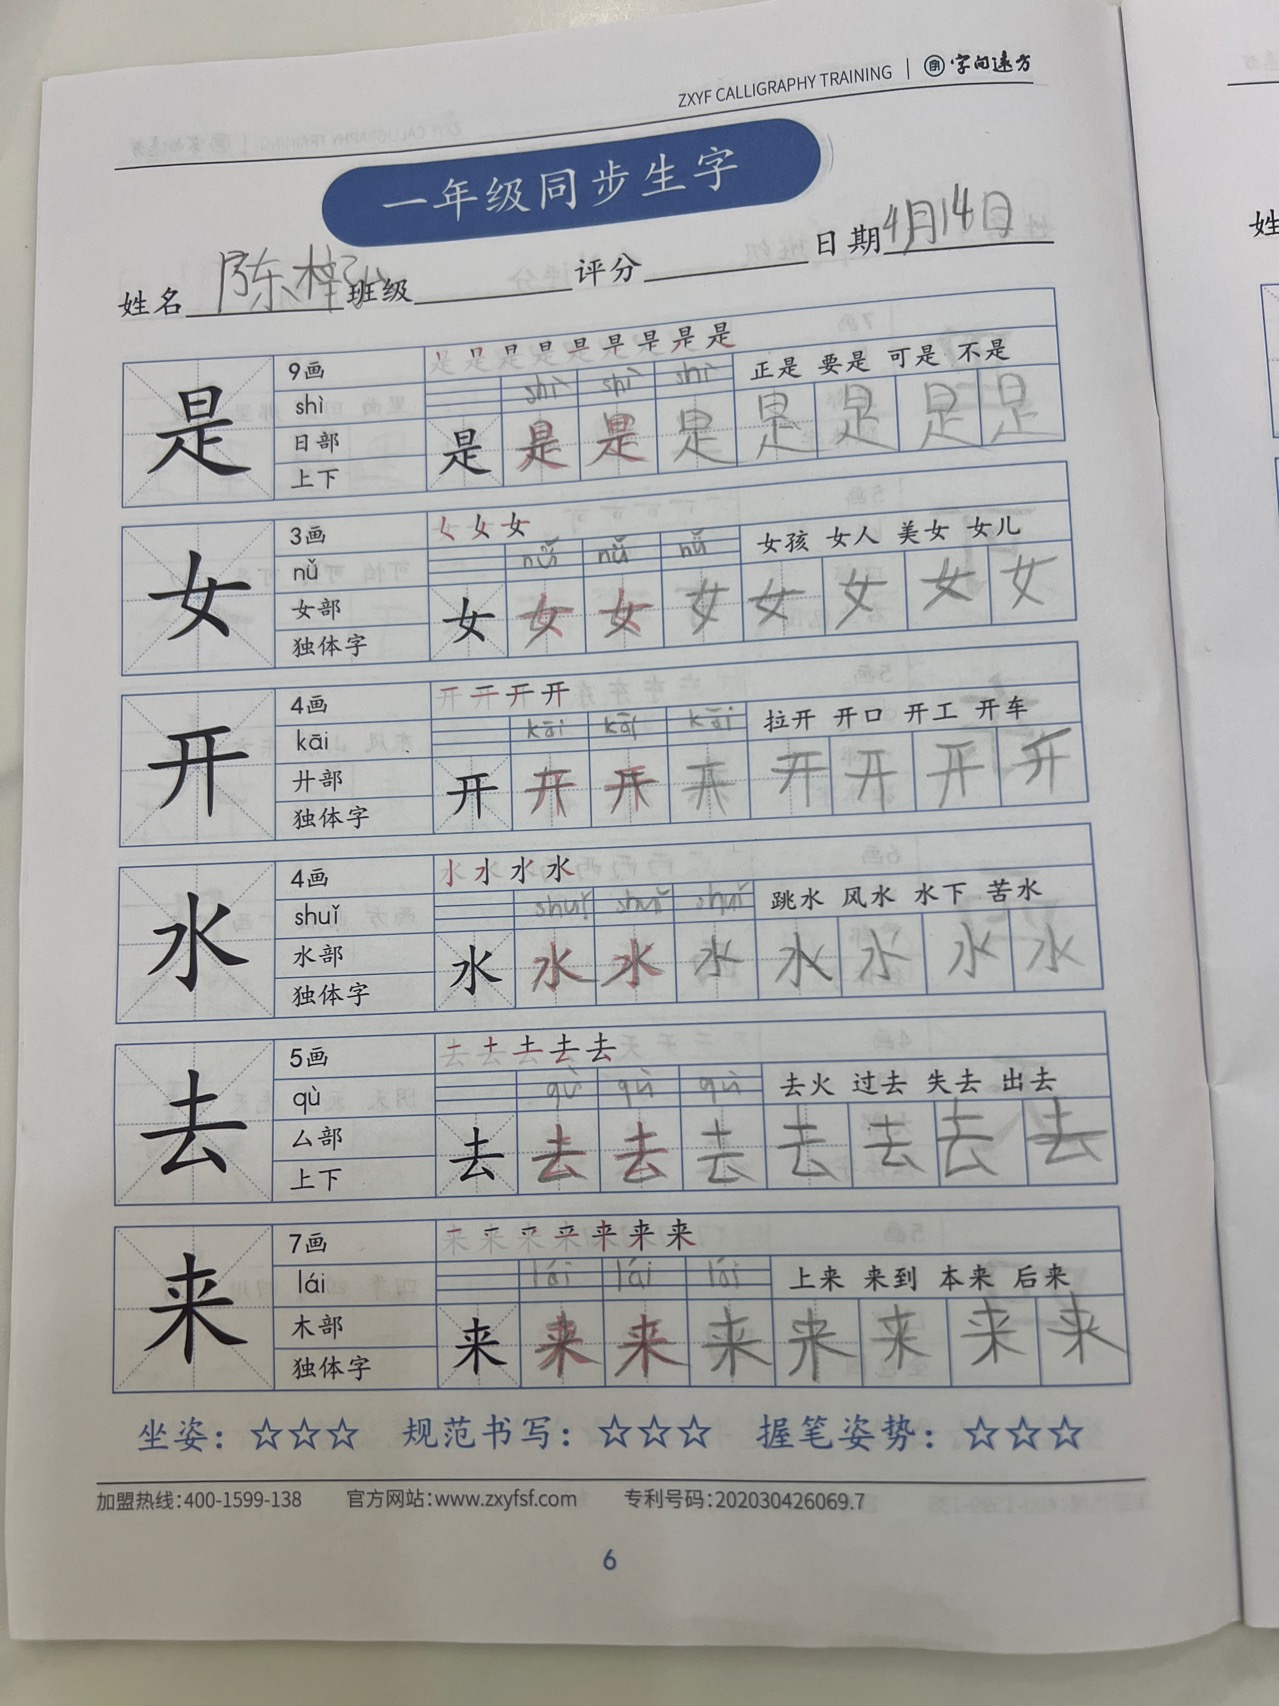 ZXYF CALLIGRAPHY TRAINING | 字向远方
一年级同步生字
姓名 陈梓 班级 评分 日期 4月14日
是 9画 是 是 是 是 是 是 是 是 是
shì shì shì shì 正是 要是 可是 不是
日部 是 是 是 是 是 是 是 是
上下
女 3画 女 女 女
nǚ nǚ nǚ nǚ 女孩 女人 美女 女儿
女部 女 女 女 女 女 女 女 女
独体字
开 4画 开 开 开 开
kāi kāi kāi kāi 拉开 开口 开工 开车
廾部 开 开 开 开 开 开 开 开
独体字
水 4画 水 水 水 水
shuǐ shuǐ shuǐ shuǐ 跳水 风水 水下 苦水
水部 水 水 水 水 水 水 水 水
独体字
去 5画 去 去 去 去 去
qù qù qù qù 去火 过去 失去 出去
厶部 去 去 去 去 去 去 去 去
上下
来 7画 来 来 来 来 来 来 来
lái lái lái lái 上来 来到 本来 后来
木部 来 来 来 来 来 来 来 来
独体字
坐姿：☆☆☆ 规范书写：☆☆☆ 握笔姿势：☆☆☆
加盟热线:400-1599-138 官方网站:www.zxyfsf.com 专利号码:202030426069.7
6